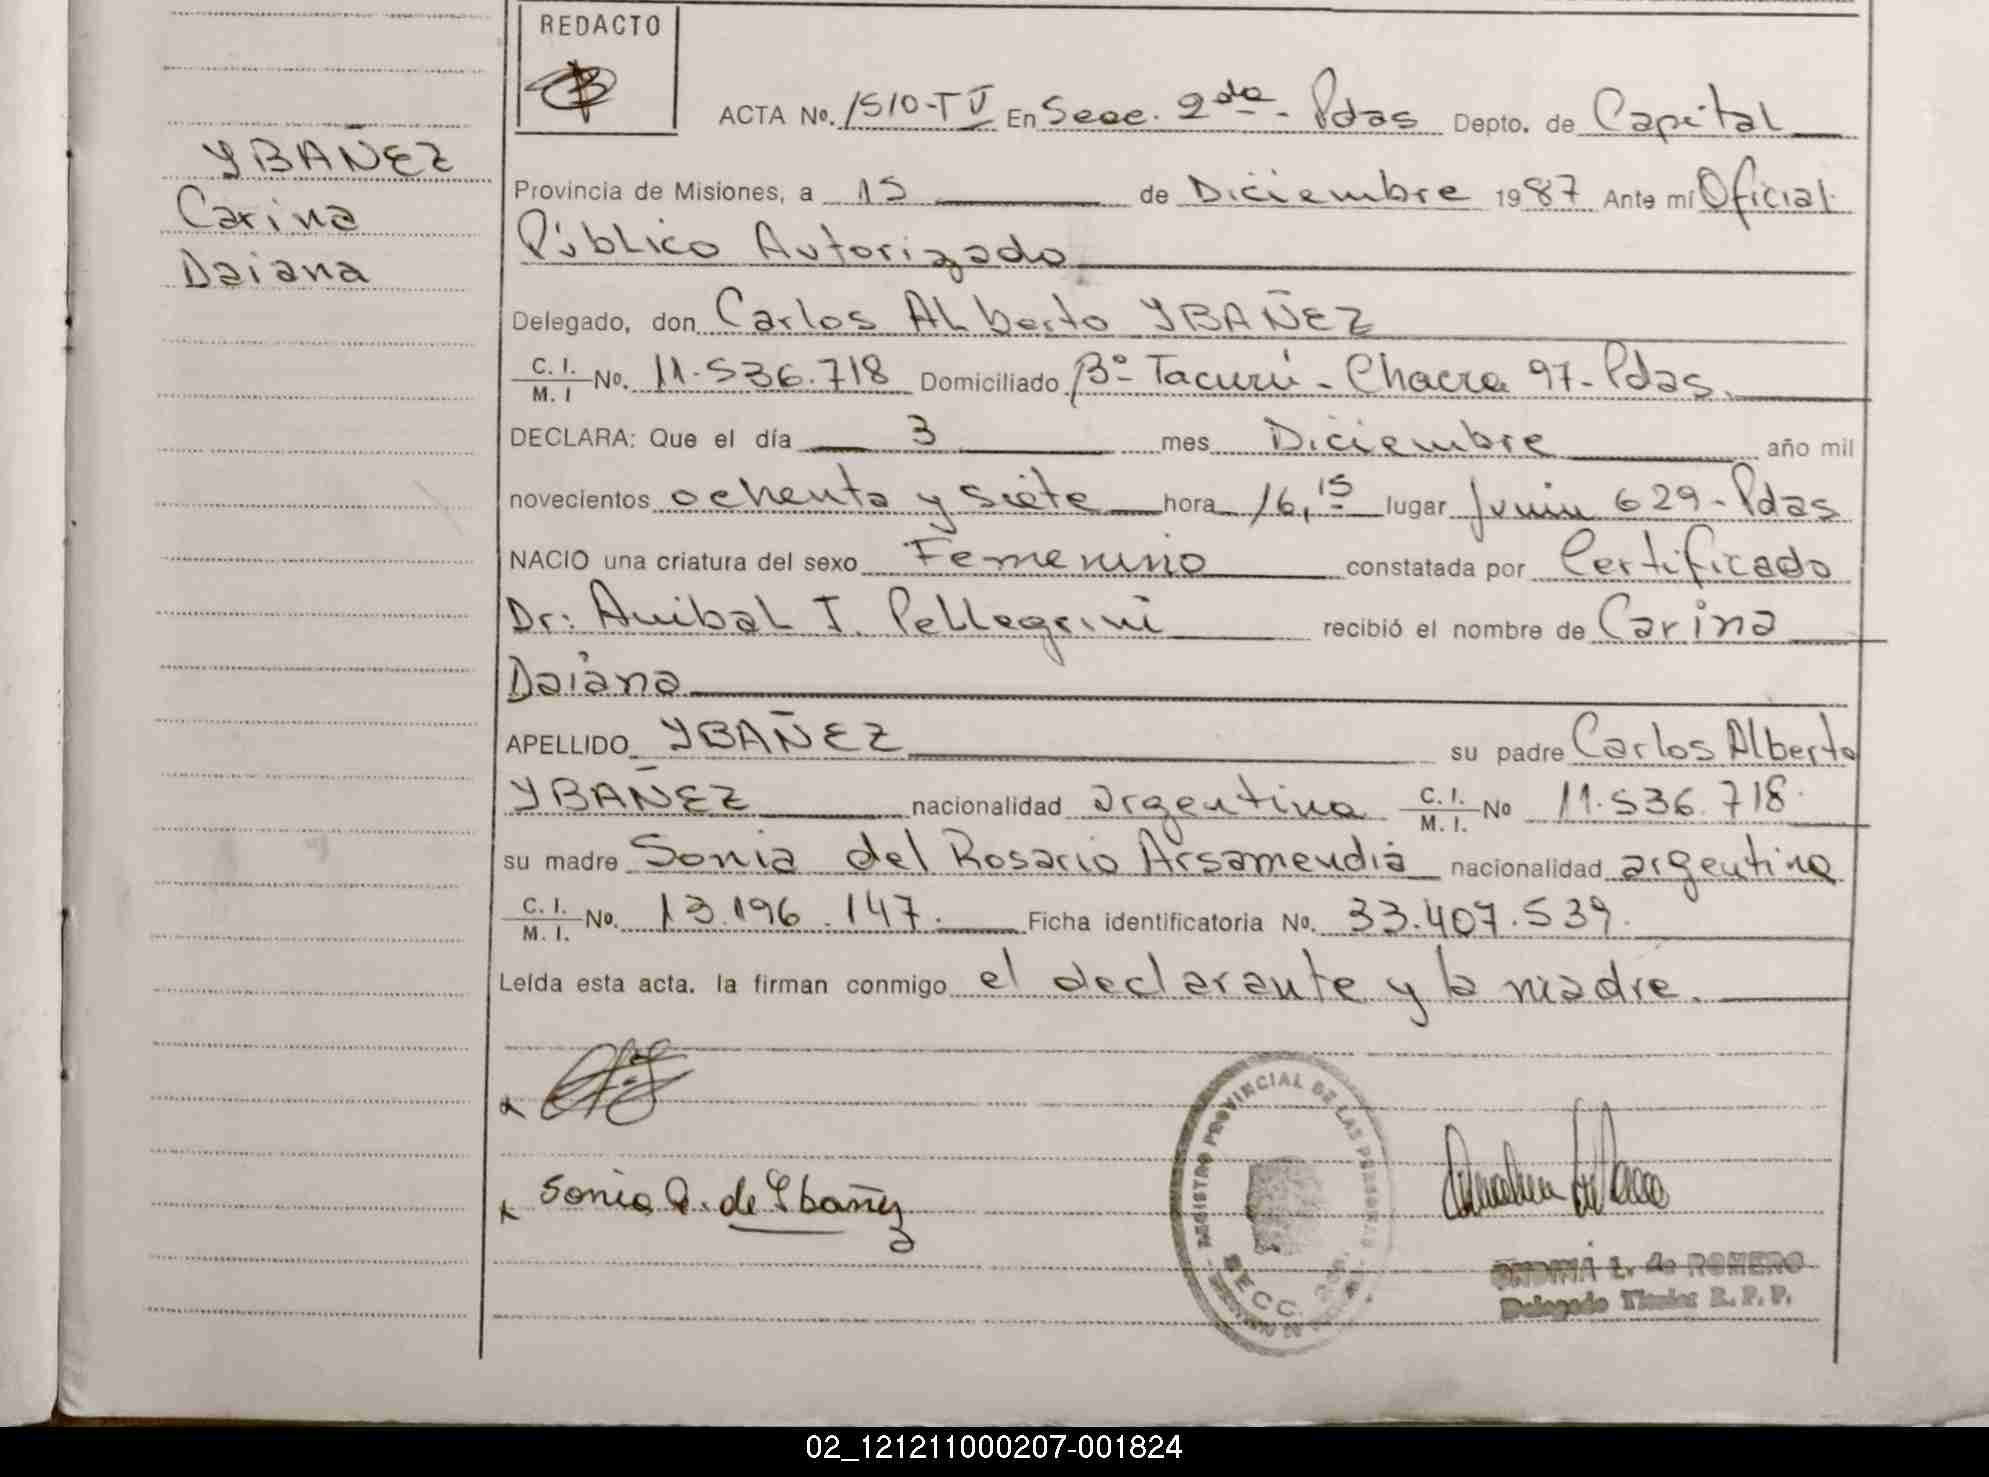 REDACTO
ACTA No. 1510-T V En Secc. 2da - Pdas Depto. de Capital
YBAÑEZ
Carina
Daiana
Provincia de Misiones, a 15 de Diciembre 1987 Ante mí Oficial
Público Autorizado
Delegado, don Carlos Alberto YBAÑEZ
C. I. / M. I No. 11.536.718 Domiciliado Bº- Tacurú - Chacra 97 - Pdas.
DECLARA: Que el día 3 mes Diciembre año mil
novecientos ochenta y siete hora 16,15 lugar Junín 629 - Pdas
NACIO una criatura del sexo Femenino constatada por Certificado
Dr: Anibal I. Pellegrini recibió el nombre de Carina
Daiana
APELLIDO YBAÑEZ su padre Carlos Alberto
YBAÑEZ nacionalidad argentina C. I. / M. I. No 11.536.718
su madre Sonia del Rosario Arsamendia nacionalidad argentina
C. I. / M. I. No. 13.196.147. Ficha identificatoria No. 33.407.539.
Leída esta acta. la firman conmigo el declarante y la madre.
Sonia A. de Ybañez
REGISTRO PROVINCIAL DE LAS PERSONAS
SECC. 2da.
Z. de ROMERO
Delegado Titular R. P. P.
02_121211000207-001824